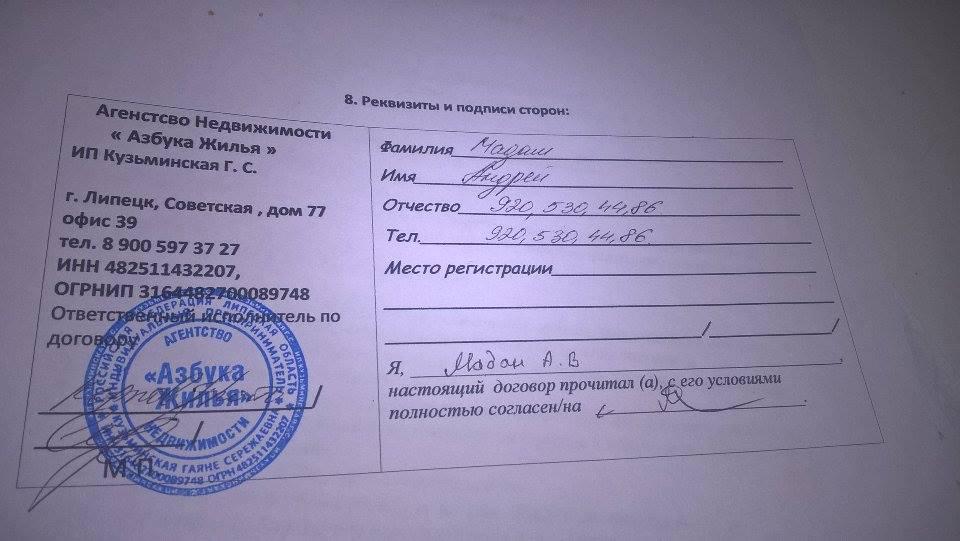 8. Реквизиты и подписи сторон:
Агенстсво Недвижимости
« Азбука Жилья »
ИП Кузьминская Г. С.
г. Липецк, Советская , дом 77
офис 39
тел. 8 900 597 37 27
ИНН 482511432207,
ОГРНИП 3164482700089748
Ответственный исполнитель по
договору
АГЕНТСТВО
«Азбука
Жилья»
НЕДВИЖИМОСТИ
РОССИЙСКАЯ ФЕДЕРАЦИЯ ЛИПЕЦКАЯ ОБЛАСТЬ
ИНДИВИДУАЛЬНЫЙ ПРЕДПРИНИМАТЕЛЬ
КУЗЬМИНСКАЯ ГАЯНЕ СЕРЖАЕВНА
/
/
М.П.
Фамилия Мадан
Имя Андрей
Отчество 920, 530, 44, 86
Тел. 920, 530, 44, 86
Место регистрации
/ /
Я, Мадан А. В ,
настоящий договор прочитал (а), с его условиями
полностью согласен/на .